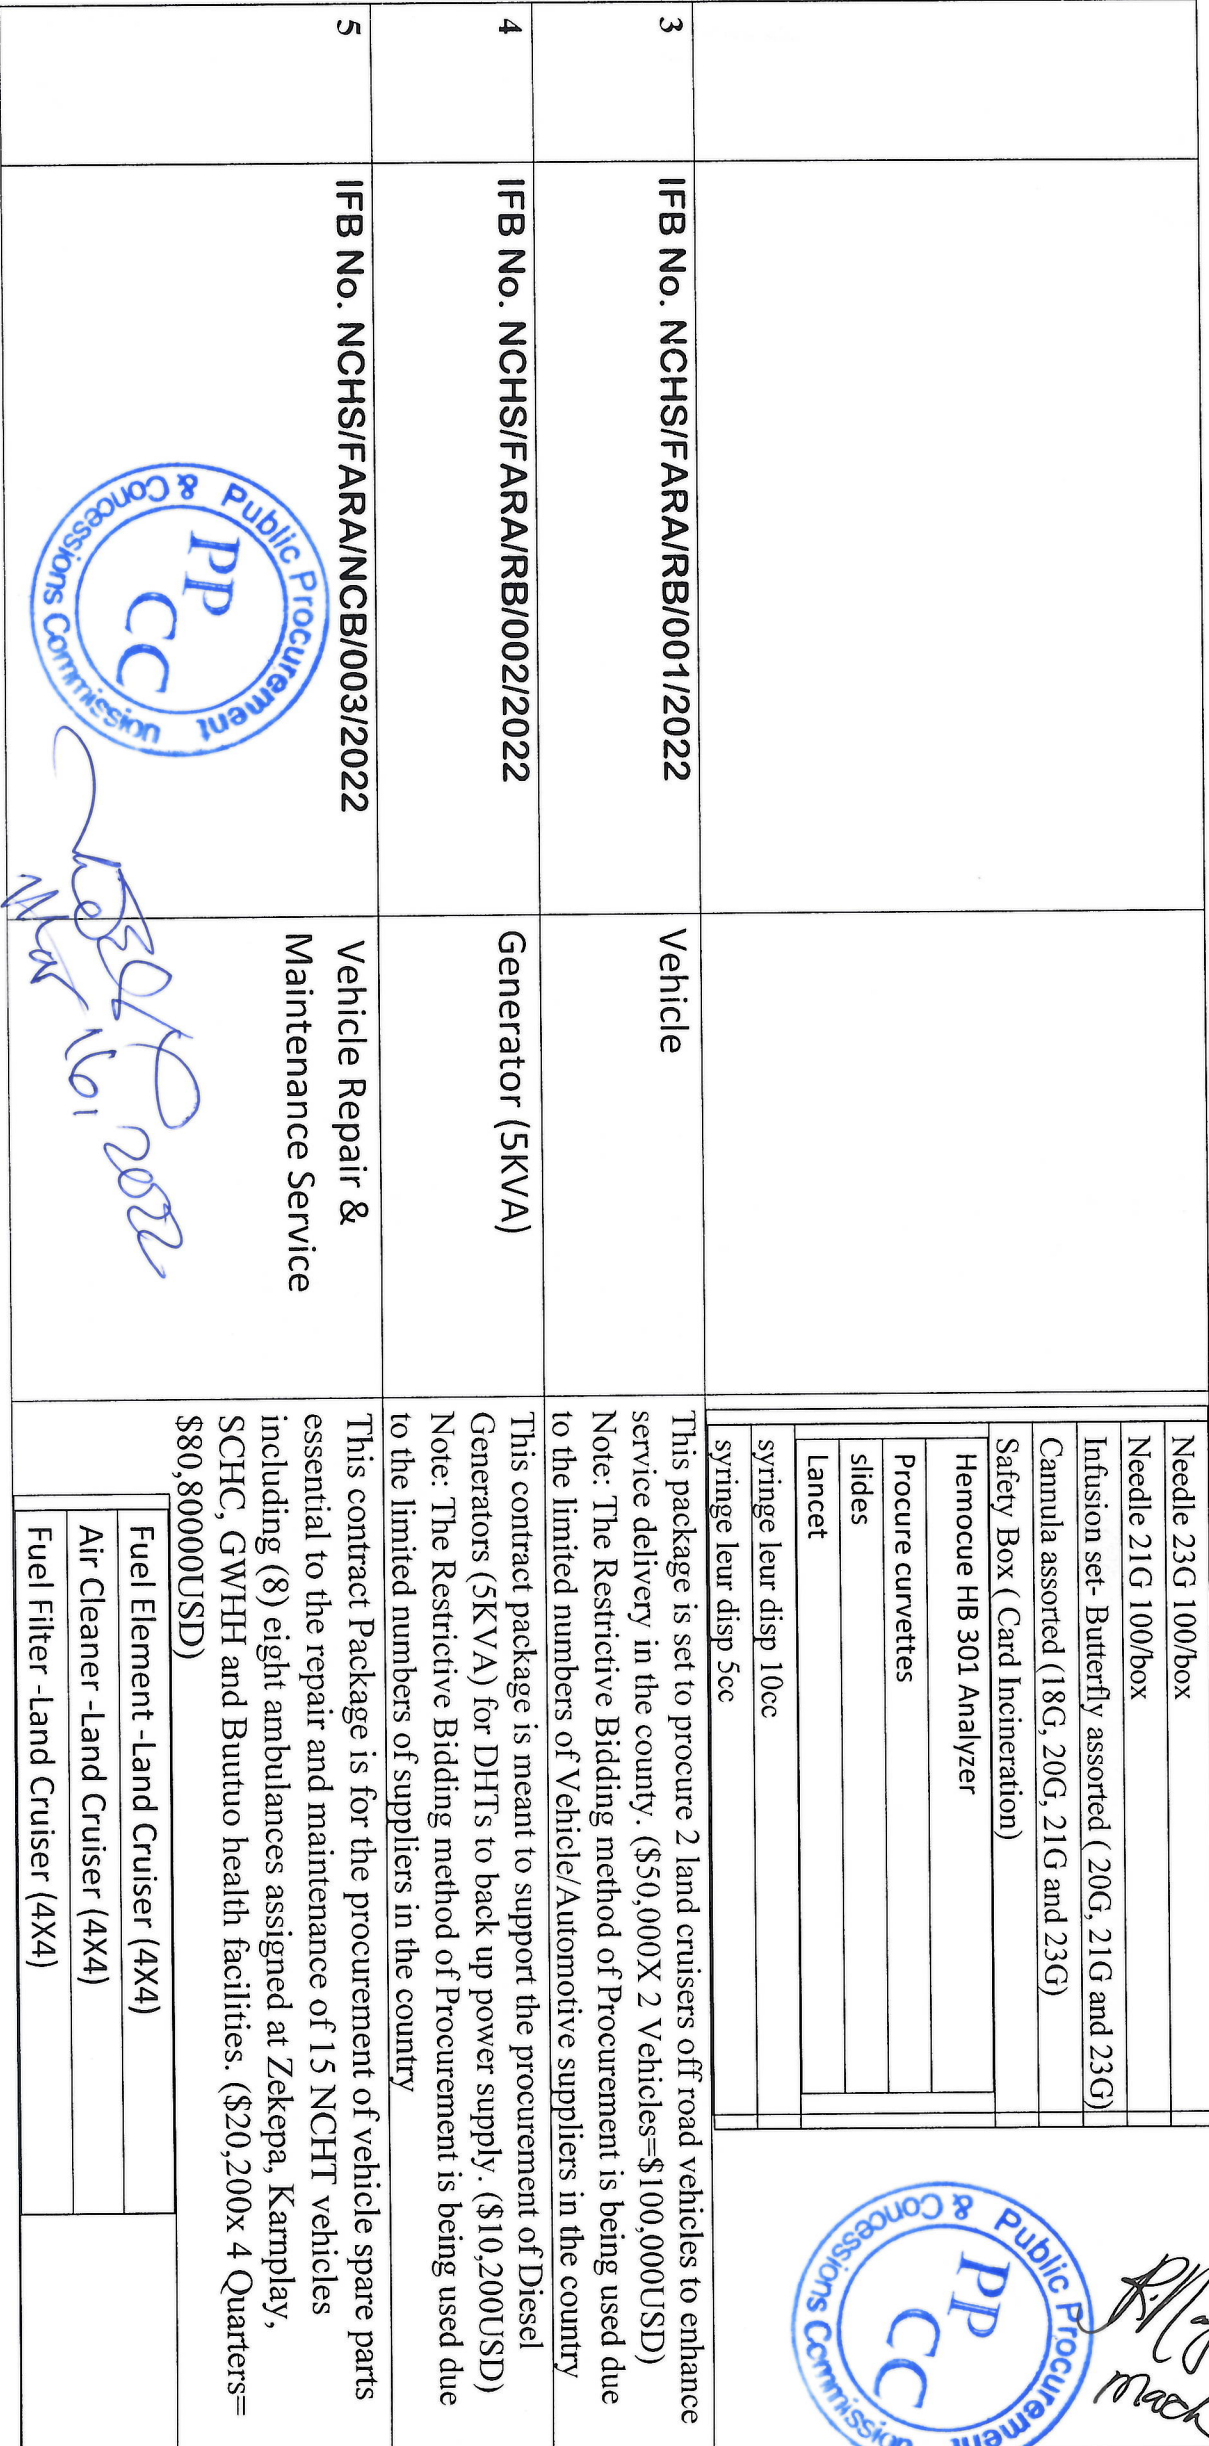 Needle 23G 100/box
Needle 21G 100/box
Infusion set- Butterfly assorted ( 20G, 21G and 23G)
Cannula assorted (18G, 20G, 21G and 23G)
Safety Box ( Card Incineration)
Hemocue HB 301 Analyzer
Procure curvettes
slides
Lancet
syringe leur disp 10cc
syringe leur disp 5cc
3
IFB No. NCHS/FARA/RB/001/2022
Vehicle
This package is set to procure 2 land cruisers off road vehicles to enhance
service delivery in the county. ($50,000X 2 Vehicles=$100,000USD)
Note: The Restrictive Bidding method of Procurement is being used due
to the limited numbers of Vehicle/Automotive suppliers in the country
4
IFB No. NCHS/FARA/RB/002/2022
Generator (5KVA)
This contract package is meant to support the procurement of Diesel
Generators (5KVA) for DHTs to back up power supply. ($10,200USD)
Note: The Restrictive Bidding method of Procurement is being used due
to the limited numbers of suppliers in the country
5
IFB No. NCHS/FARA/NCB/003/2022
Vehicle Repair &
Maintenance Service
This contract Package is for the procurement of vehicle spare parts
essential to the repair and maintenance of 15 NCHT vehicles
including (8) eight ambulances assigned at Zekepa, Karnplay,
SCHC, GWHH and Buutuo health facilities. ($20,200x 4 Quarters=
$80,80000USD)
Fuel Element -Land Cruiser (4X4)
Air Cleaner -Land Cruiser (4X4)
Fuel Filter -Land Cruiser (4X4)
Public Procurement
& Concessions Commission
PP
CC
Mar 16, 2022
Public Procurement
& Concessions Commission
PP
CC